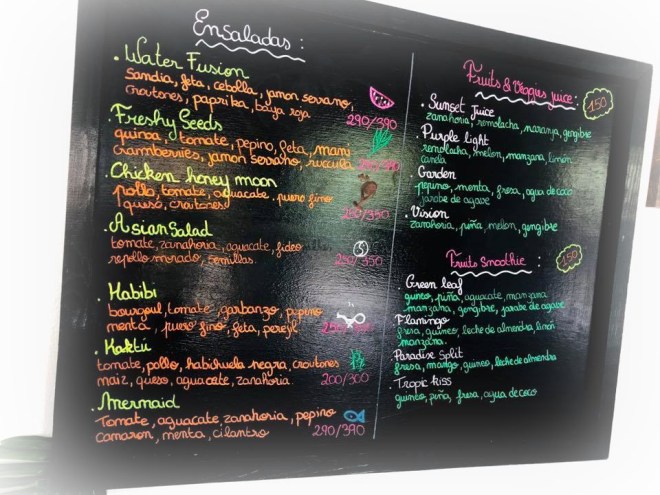 Ensaladas :
. Water Fusion
Sandia, feta, cebolla, jamon serrano,
croutones, paprika, baya roja
290/390
. Freshy Seeds
quinoa, tomate, pepino, feta, mani
cramberries, jamon serrano, ruccula
. Chicken honey moon
pollo, tomate, aguacate, puero fino
queso, croutones!
250/350
. Asian Salad
tomate, zanahoria, aguacate, fideo
repollo morado, semillas.
250/350
. Habibi
bourgoul, tomate, garbanzo, pepino
menta, puero fino, feta, perejil
. Kaktú
tomate, pollo, habichuela negra, croutones
maiz, queso, aguacate, zanahoria
200/300
. Mermaid
Tomate, aguacate, zanahoria, pepino
camaron, menta, cilantro
290/390
Fruits & Veggies juice :
150
. Sunset juice
zanahoria, remolacha, naranja, gengibre
. Purple light
remolacha, melon, manzana, limón
canela
. Garden
pepino, menta, fresa, agua de coco
jarabe de agave
. Vision
zanahoria, piña, melon, gengibre
Fruits Smoothie :
150
Green leaf
guineo, piña, aguacate, manzana
manzana, gengibre, jarabe de agave
Flamingo
fresa, guineo, leche de almendra, limón
manzana.
Paradise Split
fresa, mango, guineo, leche de almendra
. Tropic kiss
guineo, piña, fresa, agua de coco